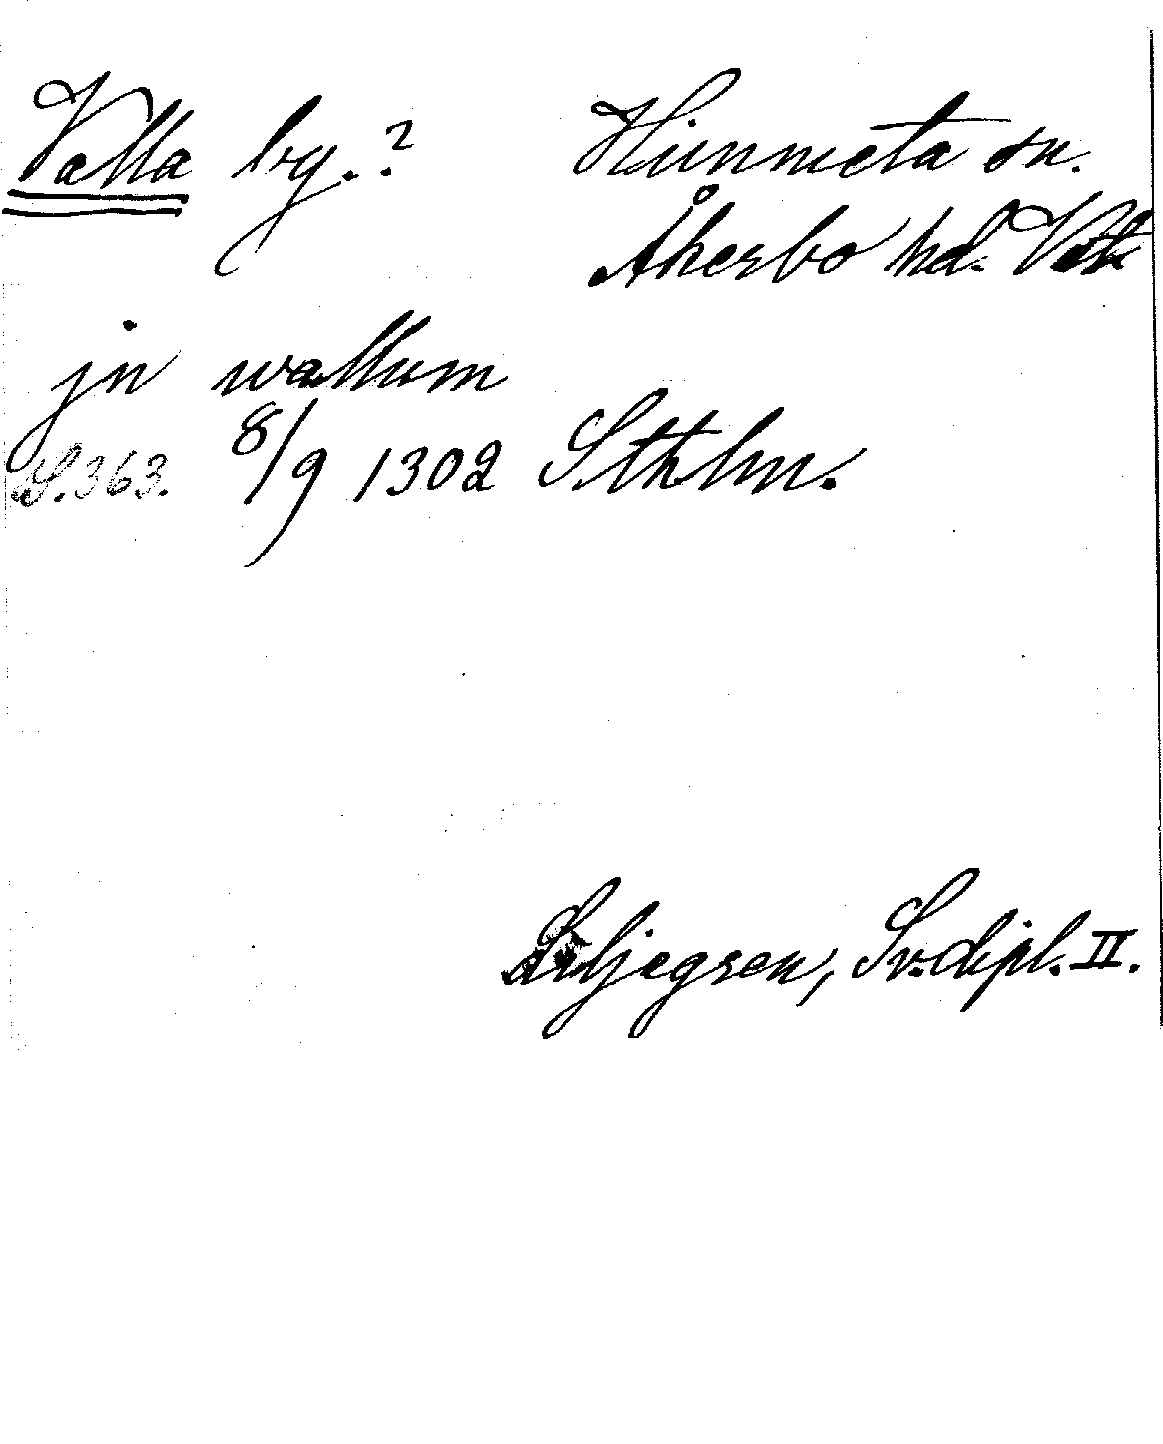 Valla by.? Himmeta sn.
Åkerbo hd. Vstm
jn wallum
S. 363. 8/9 1302 Sthlm.
Liljegren, Sv. dipl. II.